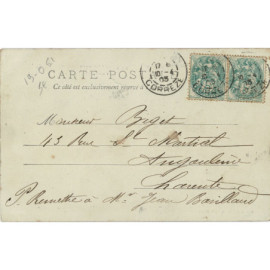 CARTE POST
Ce côté est exclusivement réservé à
CORREZE
Monsieur Biget
43 Rue St Martial
Angoulême
Charente
P. Remettre à Mr Jean Baillaud